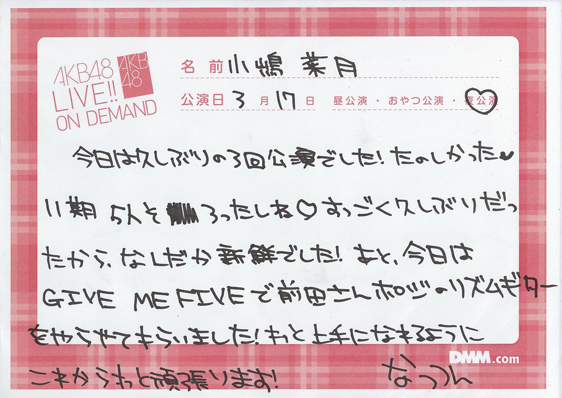 AKB48
LIVE!!
ON DEMAND
AKB
48
名前 小嶋 菜月
公演日 3 月 17 日 昼公演・おやつ公演・夜公演
今日は久しぶりの3回公演でした!たのしかった♥
11期 5人そ ろったしね♡すっごく久しぶりだっ
たから、なんだか新鮮でした!あと、今日は
GIVE ME FIVEで前田さんポジのリズムギター
をやらせてもらいました!もっと上手になれるように
これからもっと頑張ります!
なつつん
DMM.com